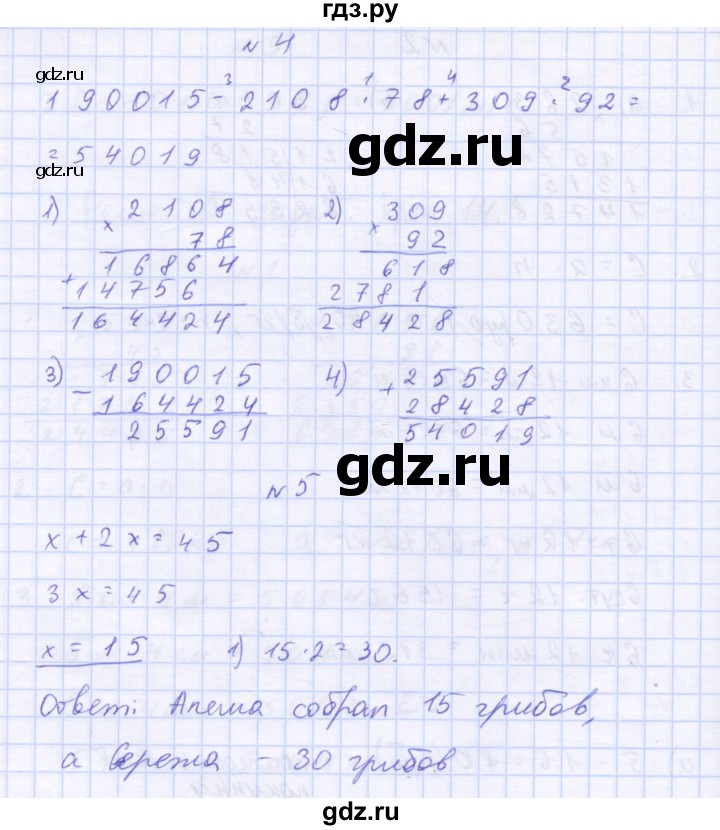 гдз.ру
№ 4
gdz.ru
3 1 4 2
190015 - 2108 · 78 + 309 · 92 =
= 54019
gdz.ru
gdz.ru
1) 2108
× 78
16864
+ 14756
164424
2) 309
× 92
618
2781
28428
3) 190015
- 164424
25591
4) 25591
+ 28428
54019
gdz.ru
№ 5
x + 2x = 45
3x = 45
x = 15 1) 15 · 2 = 30.
gdz.ru
Ответ: Алеша собрал 15 грибов,
а Сережа - 30 грибов
gdz.ru